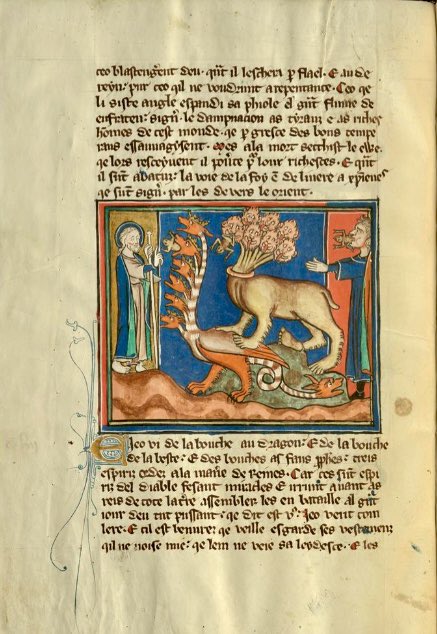 ceo blastengent deu. qnt il leschera p flael. E au de
reyn: pur ceo qil ne voudrunt a repentance. Ceo qe
li siste angle espandi sa phiole el gnt flume de
eufraten: signe. le dampnacion as tyranz e as riches
homes de cest monde. qe p gresce des bons tempe
raus ensauvagysent. mes a la mort secchist le ewe.
qe lors resceyuent il poure p lour richesces. E qnt
il sunt abatuz: la voie de la foy est de liuere a xpiens
qe sunt signe. par les de vers le orient.
E Jeo vi de la bouche au dragon: E de la bouche
de la beste: E des bouches as faus pphes: treis
espiriz ordez a la mane de reines. Car ces sunt espi
riz del diable fesant miracles E irrunt auant as
reis de tote la tere assembler les en bataille al gnt
iour deu tut pussant: qe dit est vs. Jeo venk com
lere. E cil est beneure: qe veille e sgarde ses vestemenz
qil ne voise nue: qe lem ne veie sa leydesce. E les